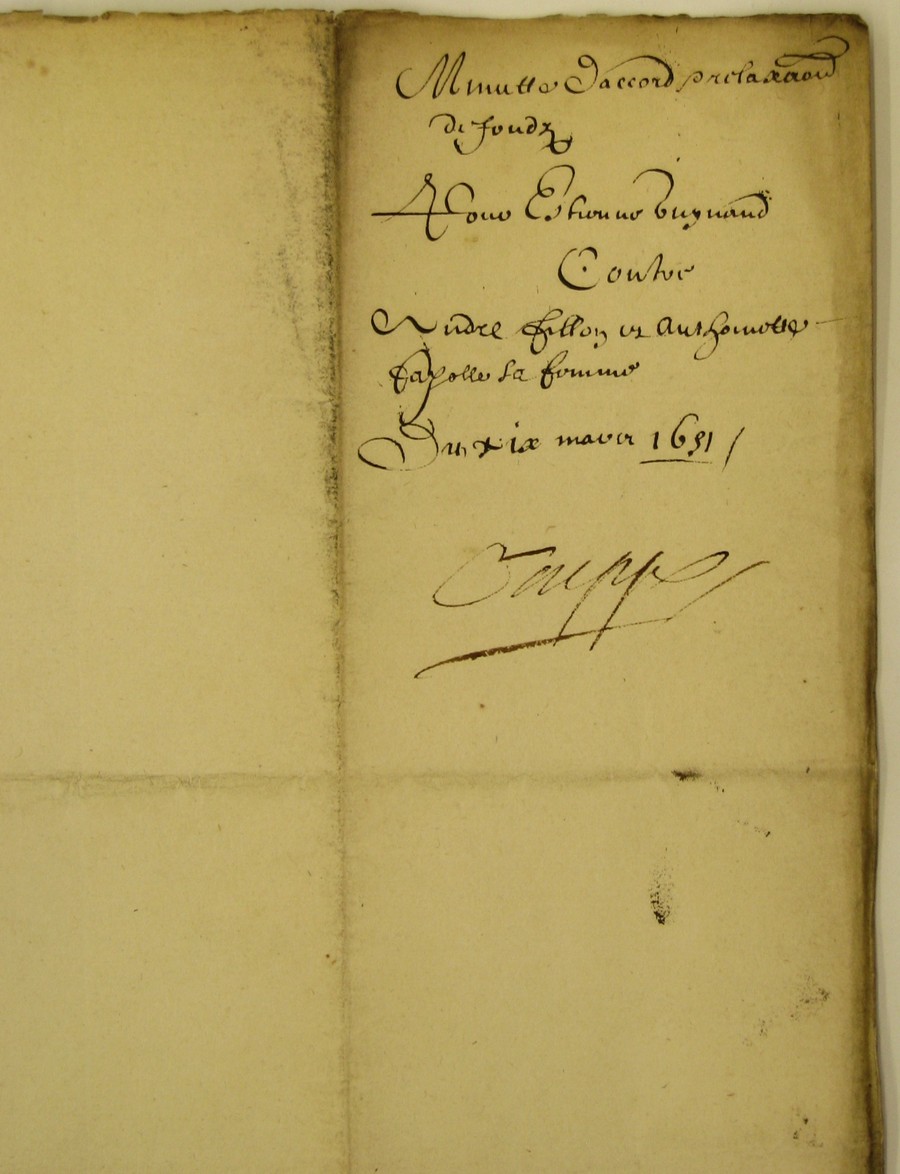 Minutte d'accord et relaxaon
de fondz
Pour Estienne buynand
Contre
Andre fillon et Anthoinette
sa femme
Du xix mars 1651